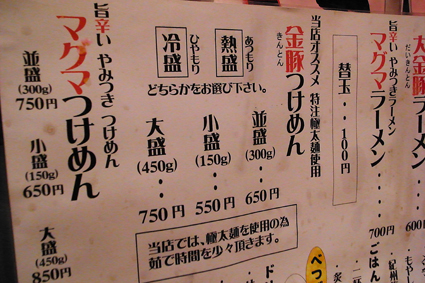 大金豚
だいきんとん
600円
旨辛い やみつきラーメン
マグマラーメン
・・・
700円
替玉・・100円
当店オススメ 特注極太麺使用
金豚つけめん
きんとん
熱盛
あつもり
冷盛
ひやもり
どちらかをお選び下さい。
並盛(300g)・・650円
小盛(150g)・・550円
大盛(450g)・・750円
旨辛い やみつき つけめん
マグマつけめん
並盛(300g)750円
小盛(150g)650円
大盛(450g)850円
当店では、極太麺を使用の為
茹で時間を少々頂きます。
ごはん
べつ